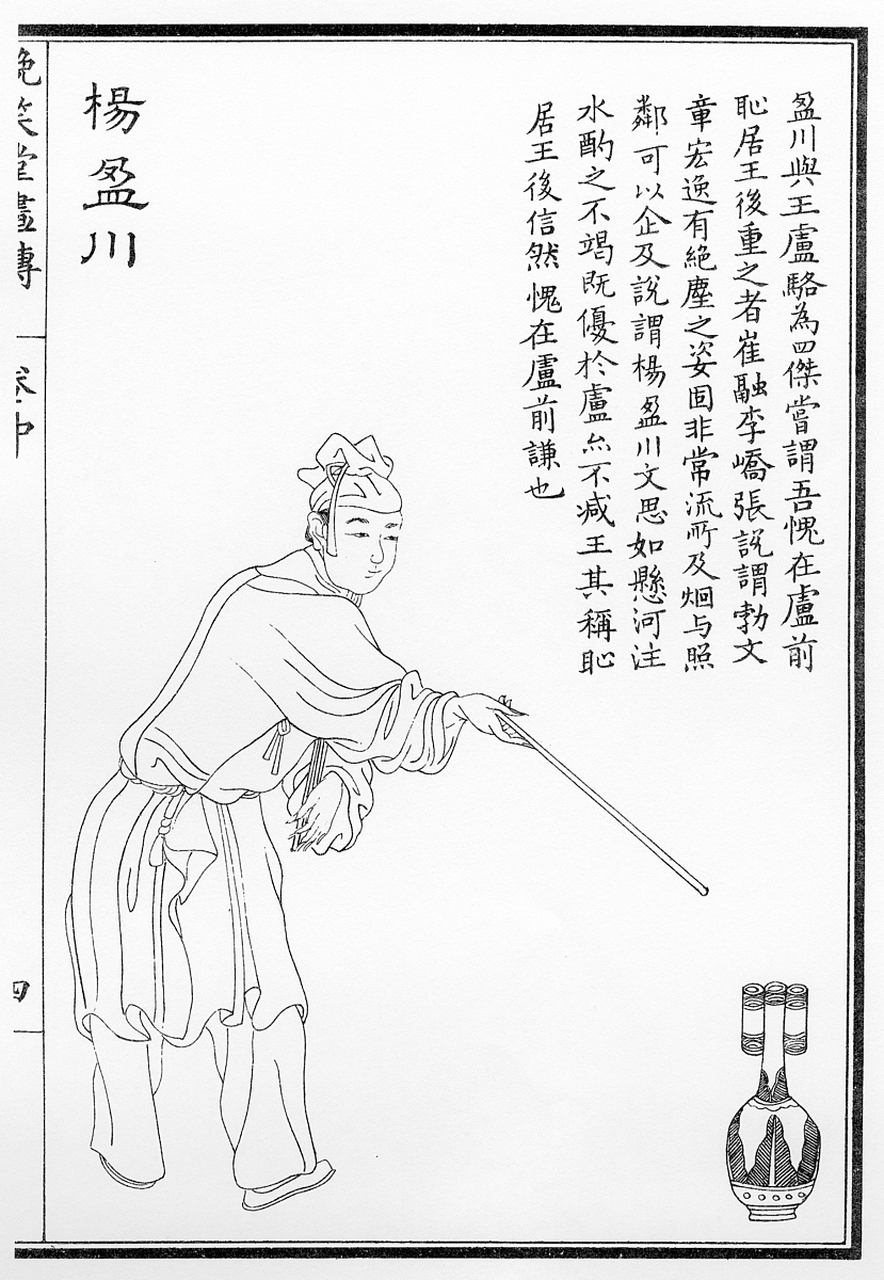 盈川與王盧駱為四傑嘗謂吾愧在盧前
恥居王後重之者崔融李嶠張說謂勃文
章宏逸有絕塵之姿固非常流所及烱与照
鄰可以企及說謂楊盈川文思如懸河注
水酌之不竭既優於盧亦不减王其稱恥
居王後信然愧在盧前謙也
楊盈川
晩笑堂畫傳
卷中
四